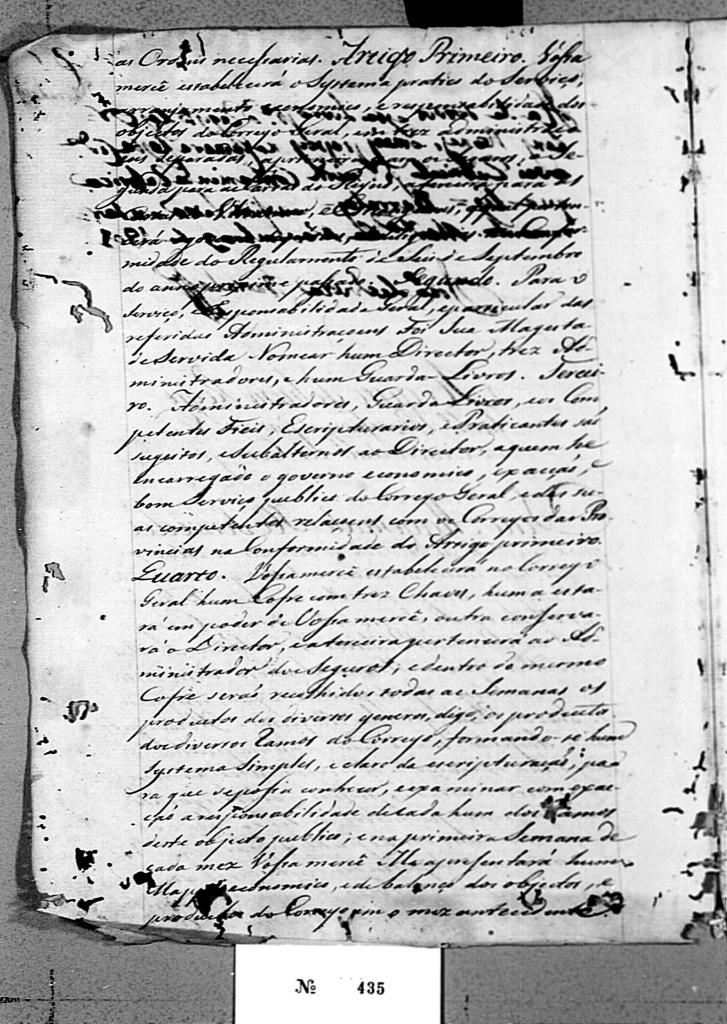 as Ordens necessarias. Artigo Primeiro. Vossa
mercê estabelecerá o Systema pratico do Serviço,
arranjamento economico, e responsabilidade dos
objectos do Correyo Geral, em trez administraço
ens separadas, a primeira para o
gunda para as Cartas do Reyno, a terceira para os
midade do Regulamento de Seis de Septembro
do anno proximo passado. Segundo. Para o
Serviço, e Responsabilidade Geral, e particular das
referidas Administraçoens Foi Sua Magesta-
de Servida Nomear hum Director, trez Ad-
ministradores, e hum Guarda-Livros. Tercei-
ro. Administradores, Guarda Livros, e os Com-
petentes Fieis, Escripturarios, e Praticantes são
sugeitos, e Subalternos ao Director, aquem he
encarregado o governo economico, exacção, e
bom Serviço publico do Correyo Geral, e das su-
as competentes relaçoens com os Correyos das Pro-
vincias na Conformidade do Artigo primeiro.
Quarto. Vossa mercê estabelecerá no Correyo
Geral hum Cofre com trez Chaves, huma esta-
rá em poder de Vossa mercê, outra conserva-
rá o Director, e a terceira pertencerá ao Ad-
ministrador dos Seguros; e dentro do mesmo
Cofre seraõ recolhidos todas as Semanas os
productos dos diversos generos, digo, os productos
dos diversos Ramos do Correyo, formando-se hum
Systema simples, e claro da escripturação, pa-
ra que se possa conhecer, e examinar com exac-
ção a responsabilidade de cada hum dos Ramos
deste objecto publico; e na primeira Semana de
cada mez Vossa mercê Me apresentará hum
Mapa economico, e de balanço dos objectos, e
productos do Correyo em o mez antecedente.
Nº 435